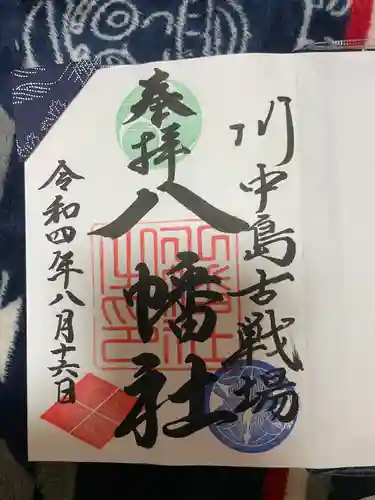 川中島古戦場
奉拝
八幡社
令和四年八月十六日